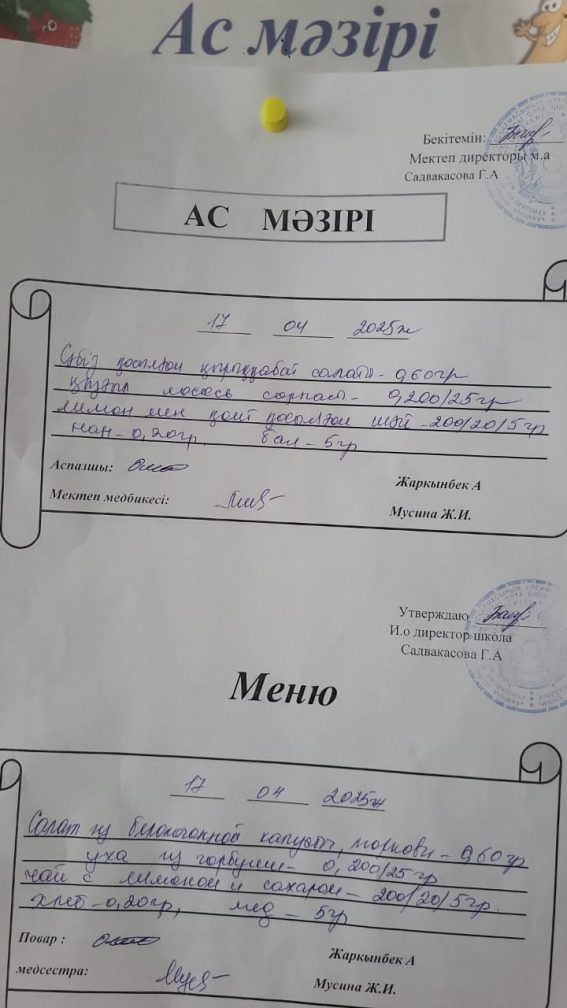 Ас мәзірі
Бекітемін:
Мектеп директоры м.а
Садвакасова Г.А
АС МӘЗІРІ
17 04 2025ж
Сәбіз қосылған қырыққабат салаты - 0,60гр
қызыл лосось сорпасы - 0,200/25гр
лимон мен қант қосылған шәй - 200/20/5гр
нан - 0,20гр, бал - 5гр
Аспазшы:
Жаркынбек А
Мектеп медбикесі:
Мусина Ж.И.
Утверждаю
И.о директор школа
Садвакасова Г.А
Меню
17 04 2025ж
Салат из белокочанной капусты, моркови - 0,60гр
уха из горбуши - 0,200/25гр
чай с лимоном и сахаром - 200/20/5гр.
хлеб - 0,20гр, мед - 5гр
Повар :
Жаркынбек А
медсестра:
Мусина Ж.И.